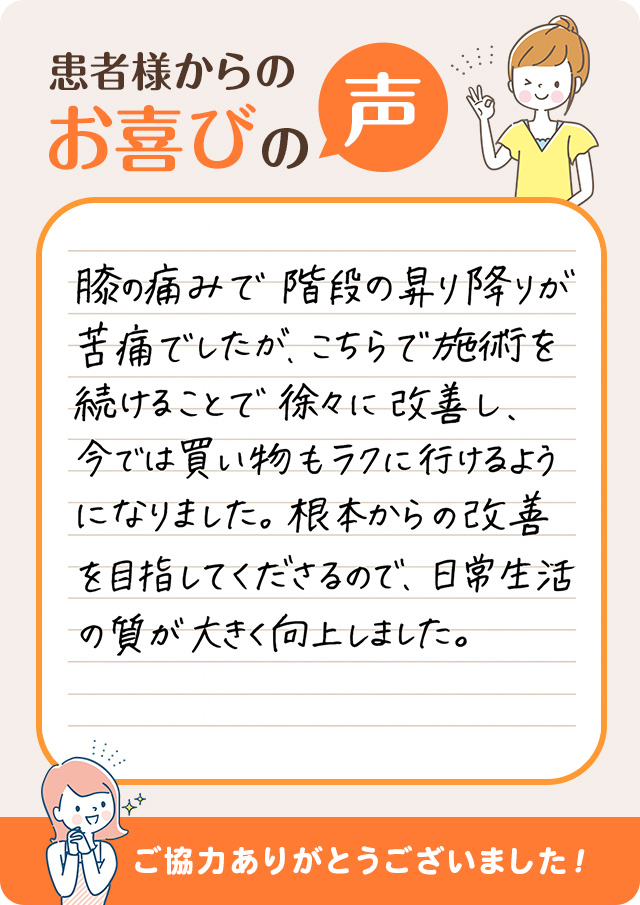 患者様からの
お喜びの声
膝の痛みで 階段の昇り降りが
苦痛でしたが、こちらで施術を
続けることで 徐々に 改善し、
今では買い物もラクに行けるよう
になりました。根本からの改善
を目指してくださるので、日常生活
の質が大きく向上しました。
ご協力ありがとうございました！